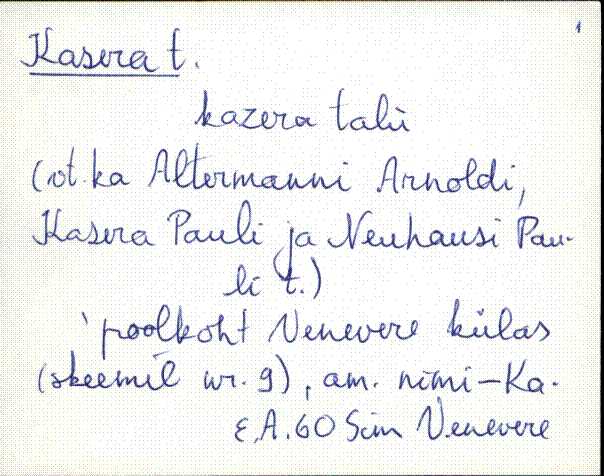 1
Kasera t.
kazera talu
(vt. ka Altermanni Arnoldi,
Kasera Pauli ja Neuhausi Pau-
li t.)
`poolkoht Venevere külas
(skeemil nr. 9), am. nimi-Ka-
E.A. 60 Sim Venevere